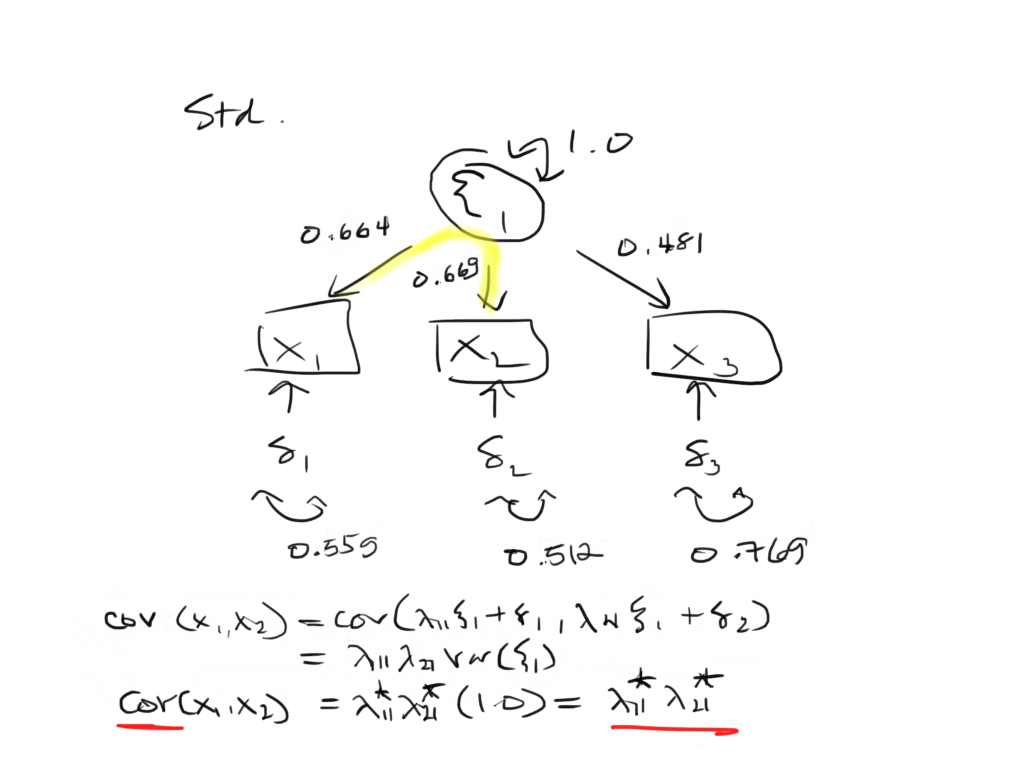 Std.
1.0
ξ1
0.664
0.669
0.481
x1
x2
x3
δ1
δ2
δ3
0.559
0.512
0.769
cov (x1, x2) = cov(λ11ξ1 + δ1, λ21ξ1 + δ2)
= λ11 λ21 var(ξ1)
cor(x1, x2) = λ*11 λ*21 (1.0) = λ*11 λ*21